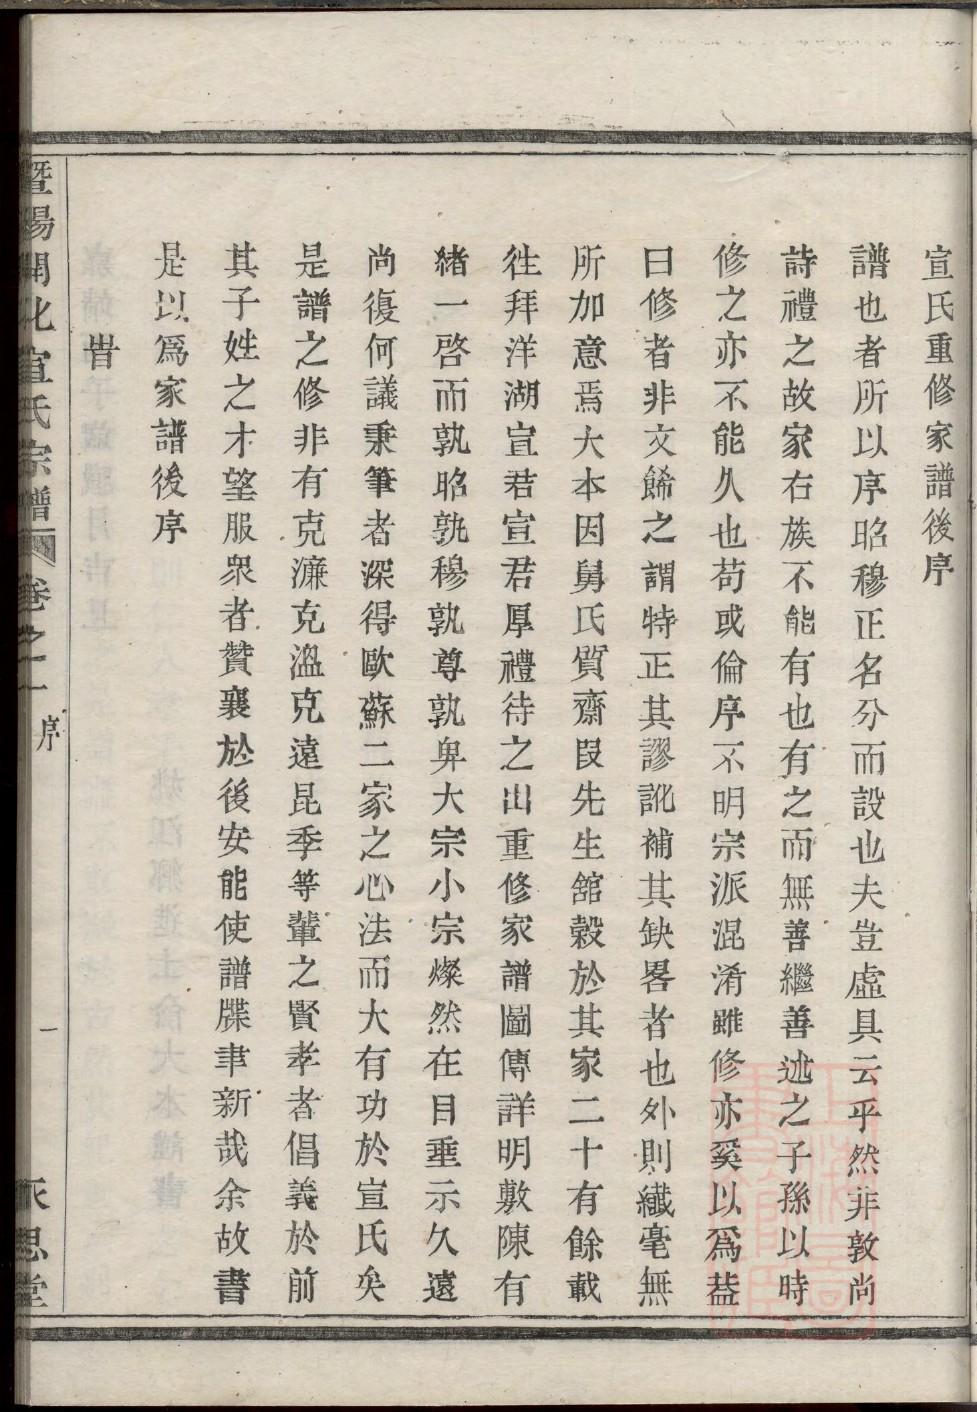 宣氏重修家譜後序
譜也者所以序昭穆正名分而設也夫豈虛具云乎然非敦尚
詩禮之故家右族不能有也有之而無善繼善述之子孫以時
修之亦不能久也苟或倫序不明宗派混淆雖修亦奚以爲益
曰修者非文餙之謂特正其謬訛補其缺畧者也外則纎毫無
所加意焉大本因舅氏質齋叚先生舘穀於其家二十有餘載
徃拜洋湖宣君宣君厚禮待之出重修家譜圖傳詳明敷陳有
緒一啓而孰昭孰穆孰尊孰卑大宗小宗燦然在目垂示久遠
尚復何議秉筆者深得歐蘇二家之心法而大有功於宣氏矣
是譜之修非有克濂克溫克遠昆季等輩之賢孝者倡義於前
其子姓之才望服衆者贊襄於後安能使譜牒聿新哉余故書
是以爲家譜後序
旹
暨陽開化宣氏宗譜 卷之一 序 一 永思堂